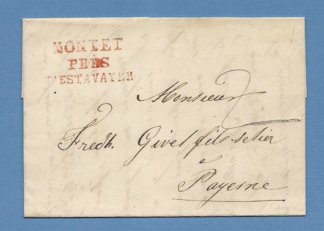 MONTET
PRÈS
D'ESTAVAYER
Monsieur
Fredk. Givel fils
à
Payerne